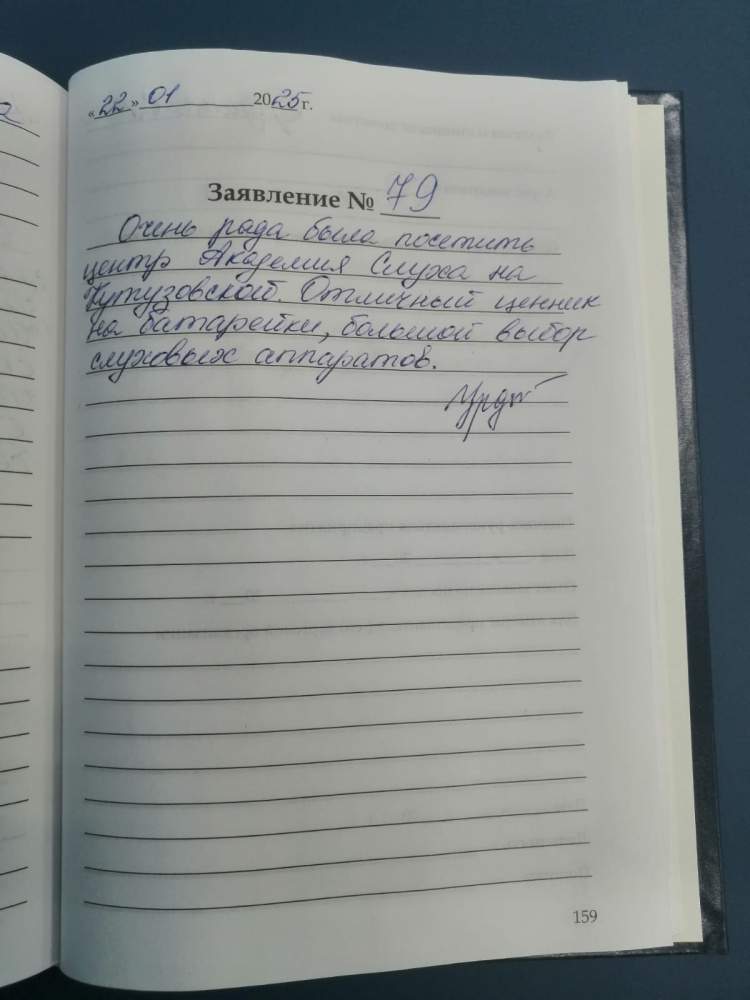 «22» 01 2025 г.
Заявление № 79
Очень рада была посетить
центр Академия Слуха на
Кутузовской. Отличный ценник
на батарейки, большой выбор
слуховых аппаратов.
159